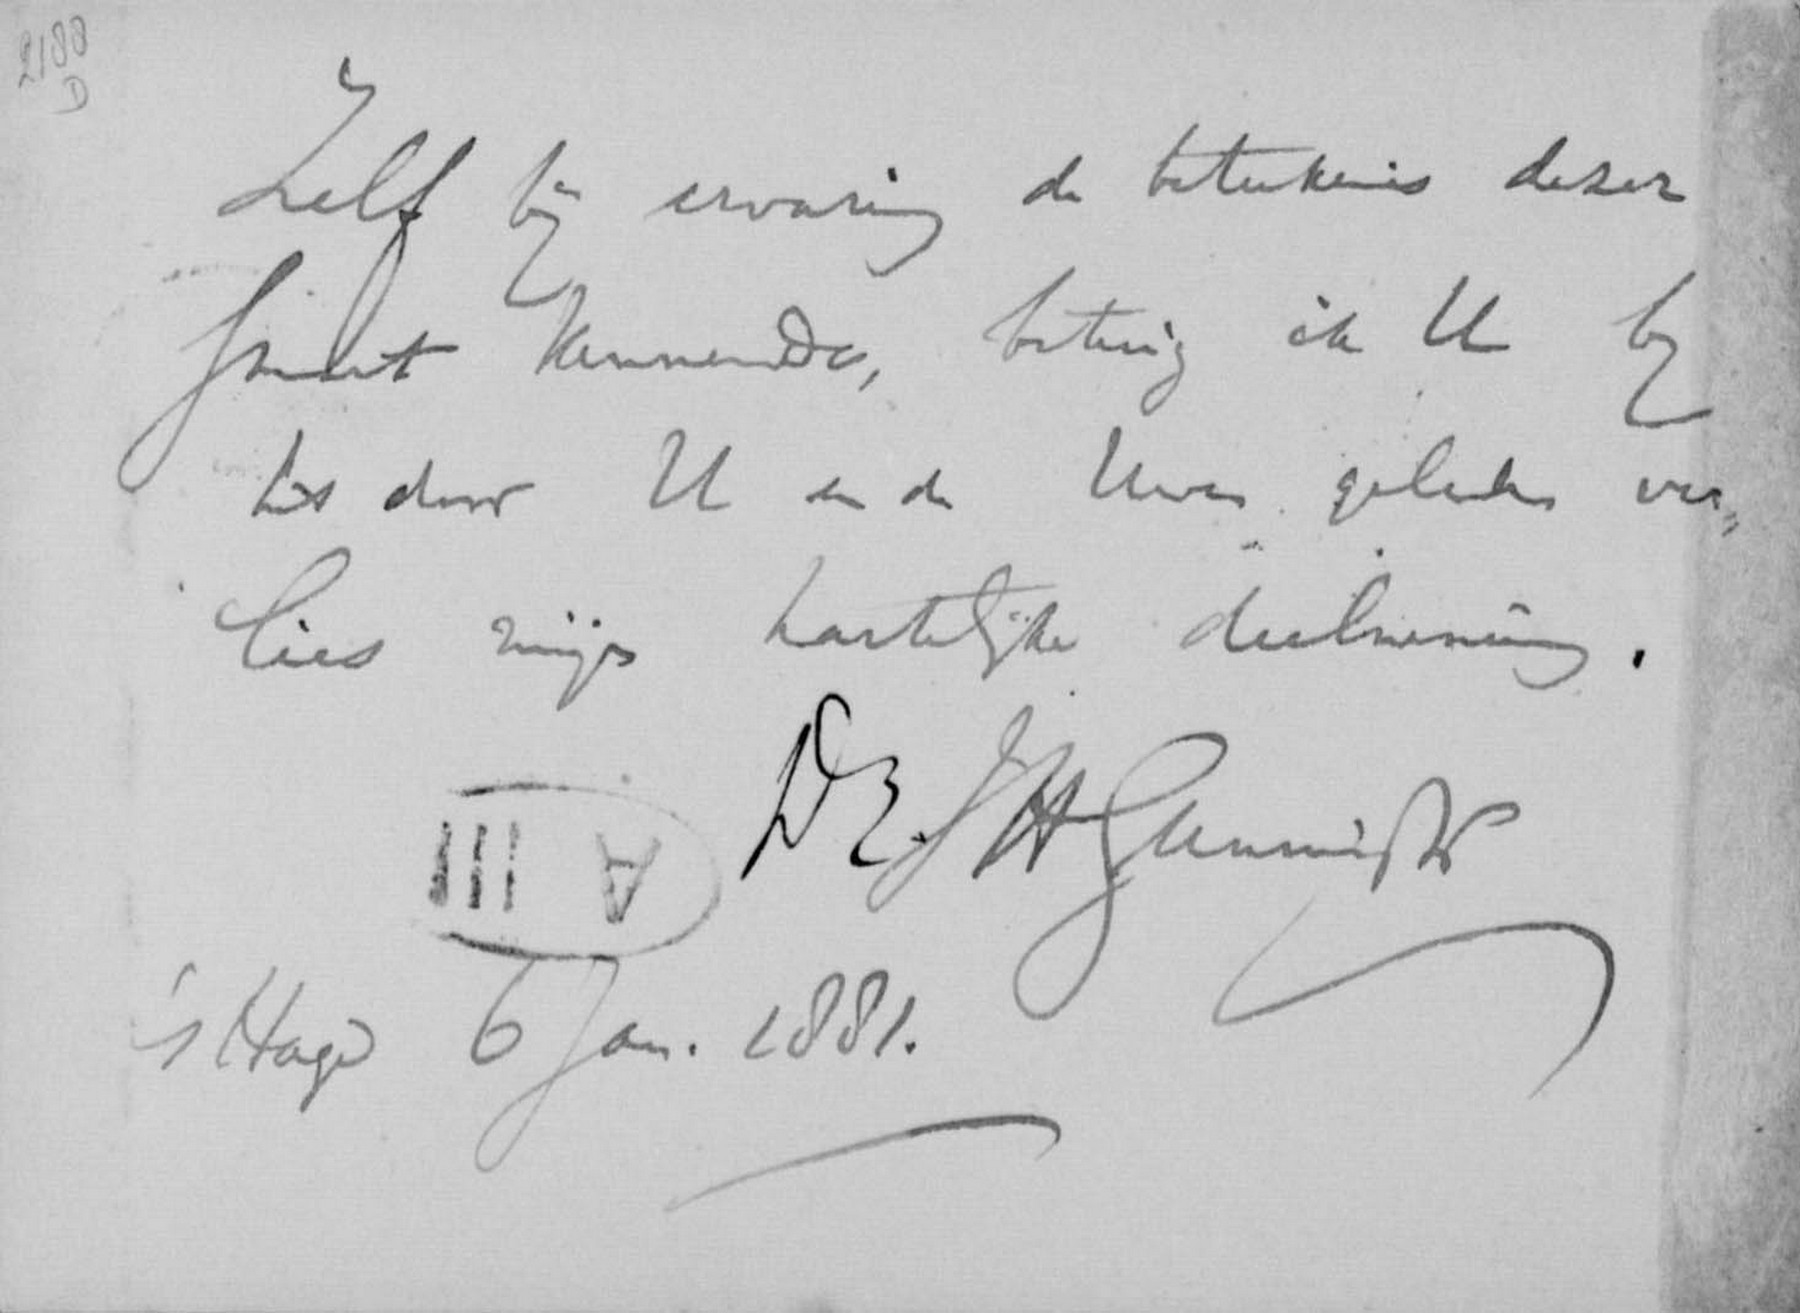 2188
D
Zelf bij ervaring de beteekenis dezer
smart kennende, betuig ik U bij
het door U en de Uwen geleden ver„
lies mijn hartelijke deelneming.
Dr. J H Gunning Jr
A III
's Hage 6 Jan. 1881.